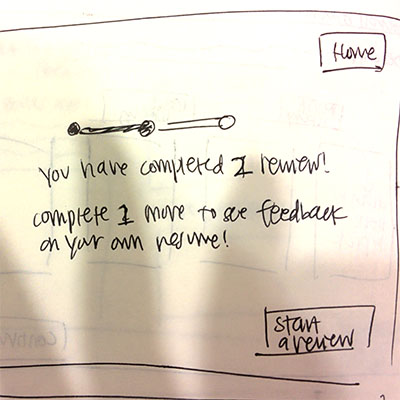 Home
You have completed 1 review!
complete 1 more to see feedback
on your own resume!
start
a review